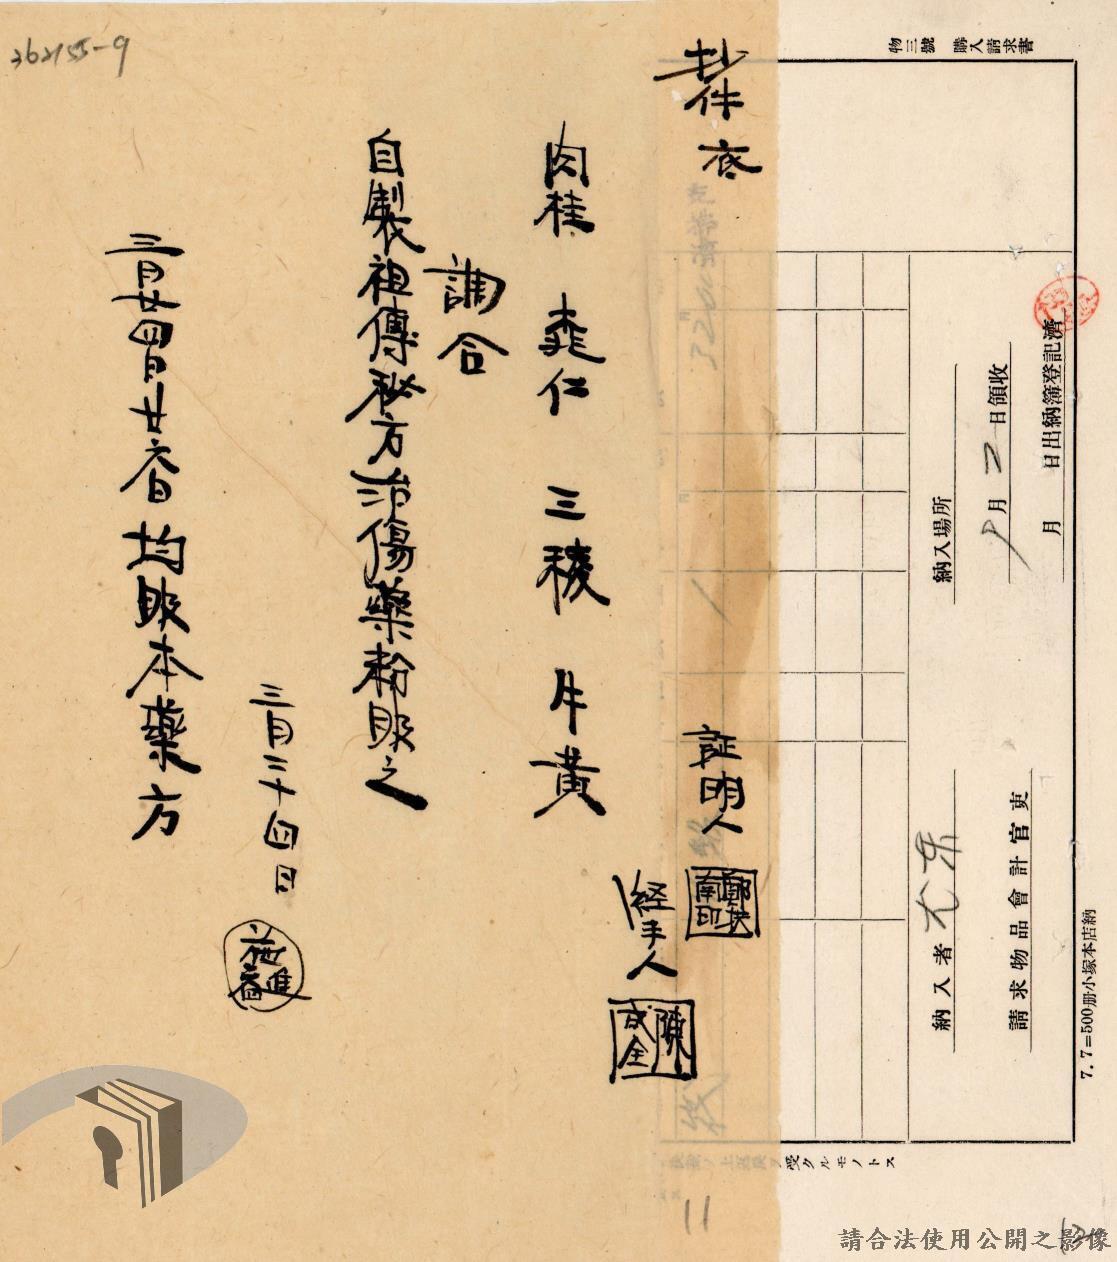 物三號　購入請求書
濟記登簿納出日　月
收領日2月9
納入場所
請求物品會計官吏
納入者
7.7=500册小塚本店納
受クルモノトス
抄件底
証明人
經手人
陳成全
肉桂　桃仁　三稜　牛黃
調合
自製祖傳秘方治傷藥粉服之
三月二十四日
三月廿四日廿六日均服本藥方
262155-9
11
請合法使用公開之影像